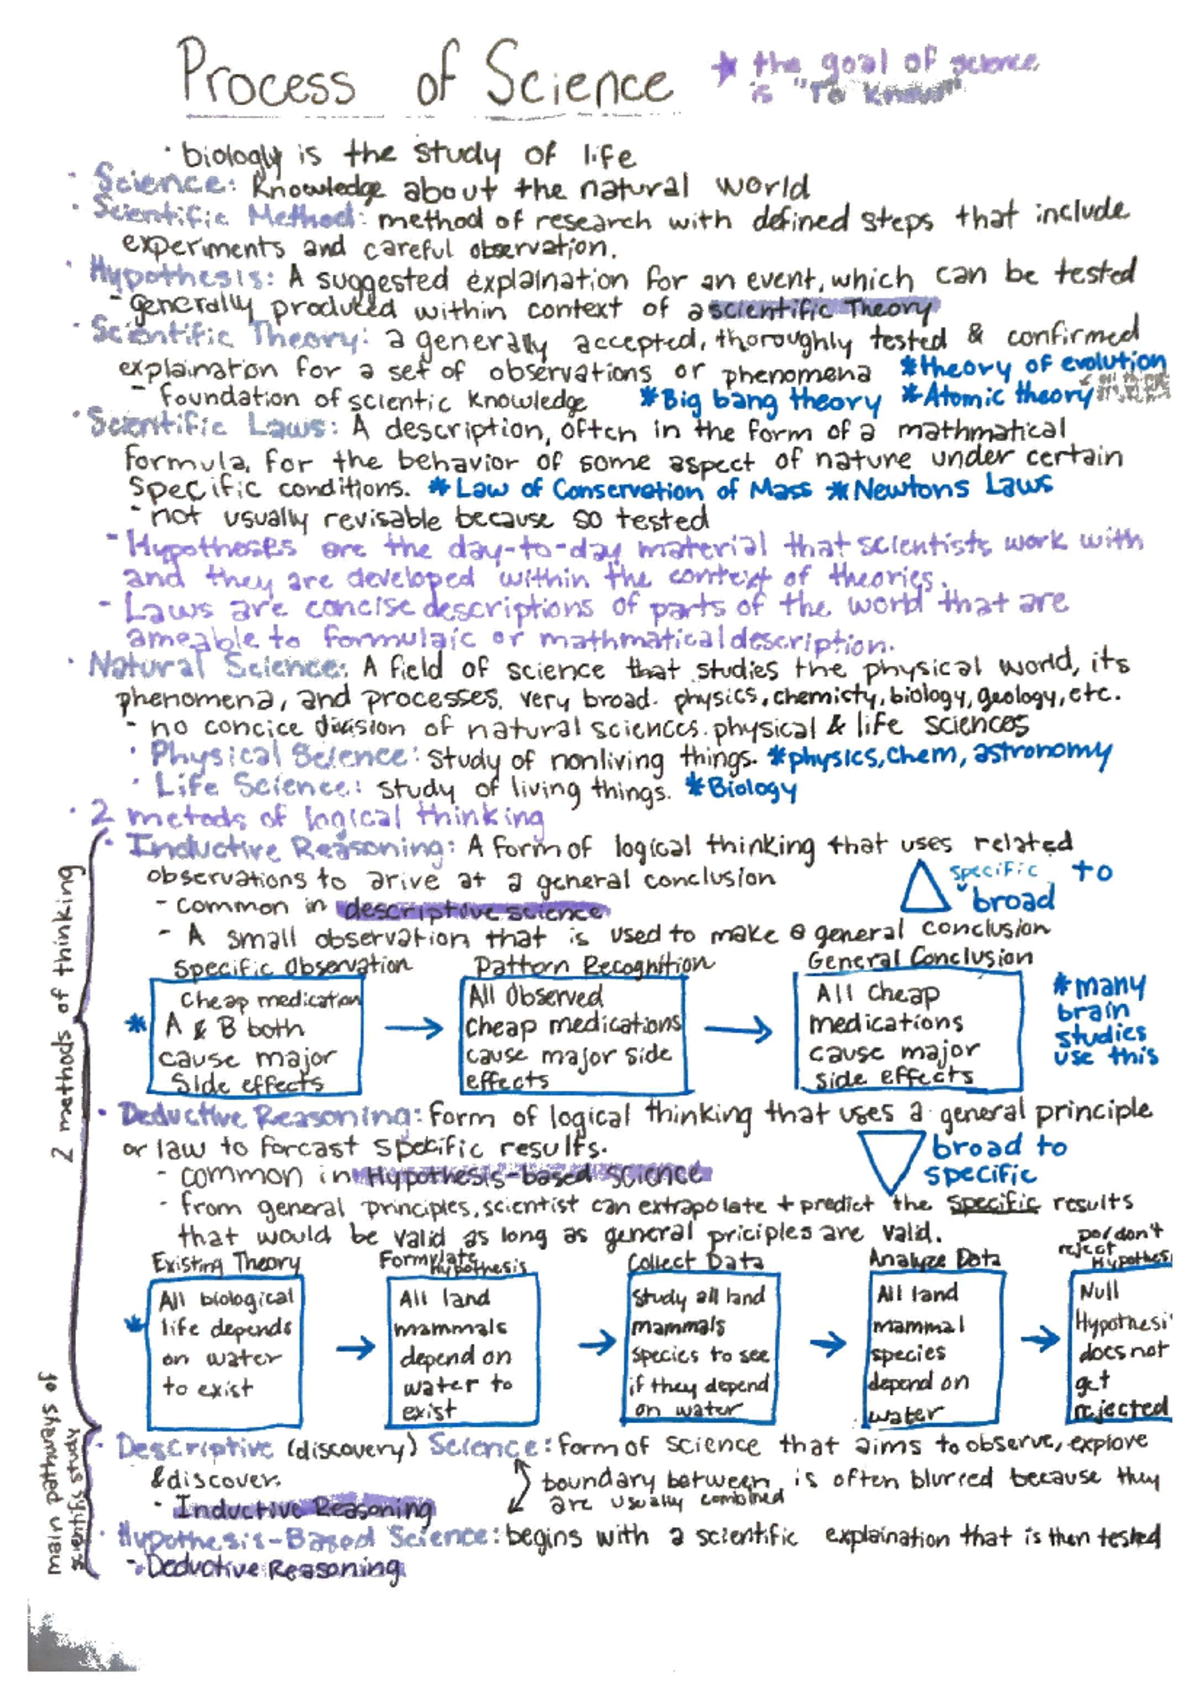 Process of Science
* the goal of science
is "To Know"
· biology is the study of life
· Science: Knowledge about the natural world
· Scientific Method: method of research with defined steps that include
experiments and careful observation.
· Hypothesis: A suggested explaination for an event, which can be tested
- generally produced within context of a scientific Theory
· Scientific Theory: a generally accepted, thoroughly tested & confirmed
explaination for a set of observations or phenomena *theory of evolution
- foundation of scientic Knowledge *Big bang theory *Atomic theory
· Scientific Laws: A description, often in the form of a mathmatical
formula, for the behavior of some aspect of nature under certain
specific conditions. *Law of Conservation of Mass *Newtons Laws
- not usually revisable because so tested
- Hypotheses are the day-to-day material that scientists work with
and they are developed within the context of theories.
- Laws are concise descriptions of parts of the world that are
ameable to formulaic or mathmatical description.
· Natural Science: A field of science that studies the physical world, its
phenomena, and processes. very broad. physics, chemisty, biology, geology, etc.
- no concice division of natural sciences. physical & life sciences
· Physical Science: study of nonliving things. *physics, chem, astronomy
· Life Science: study of living things. *Biology
· 2 metods of logical thinking
2 methods of thinking
· Inductive Reasoning: A form of logical thinking that uses related
observations to arive at a general conclusion
specific to
broad
- common in descriptive science
- A small observation that is used to make a general conclusion
Specific Observation
Cheap medication
* A & B both
cause major
Side effects
Pattern Recognition
All Observed
Cheap medications
cause major side
effects
General Conclusion
All cheap
medications
cause major
side effects
*many
brain
studies
use this
· Deductive Reasoning: form of logical thinking that uses a general principle
or law to forcast specific results.
broad to
specific
- common in Hypothesis-based science
- from general principles, scientist can extrapolate + predict the specific results
that would be valid as long as general priciples are valid.
Existing Theory
All biological
* life depends
on water
to exist
Formulate
Hypothesis
All land
mammals
depend on
water to
exist
Collect Data
Study all land
mammals
species to see
if they depend
on water
Analyze Data
All land
mammal
species
depend on
water
Do/don't
reject
Hypothesi
Null
Hypothesi
does not
get
rejected
main pathways of
scientific study
· Descriptive (discovery) Science: form of science that aims to observe, explore
& discover.
boundary between is often blurred because they
are usually combined
- Inductive Reasoning
· Hypothesis-Based Science: begins with a scientific explaination that is then tested
- Deductive Reasoning